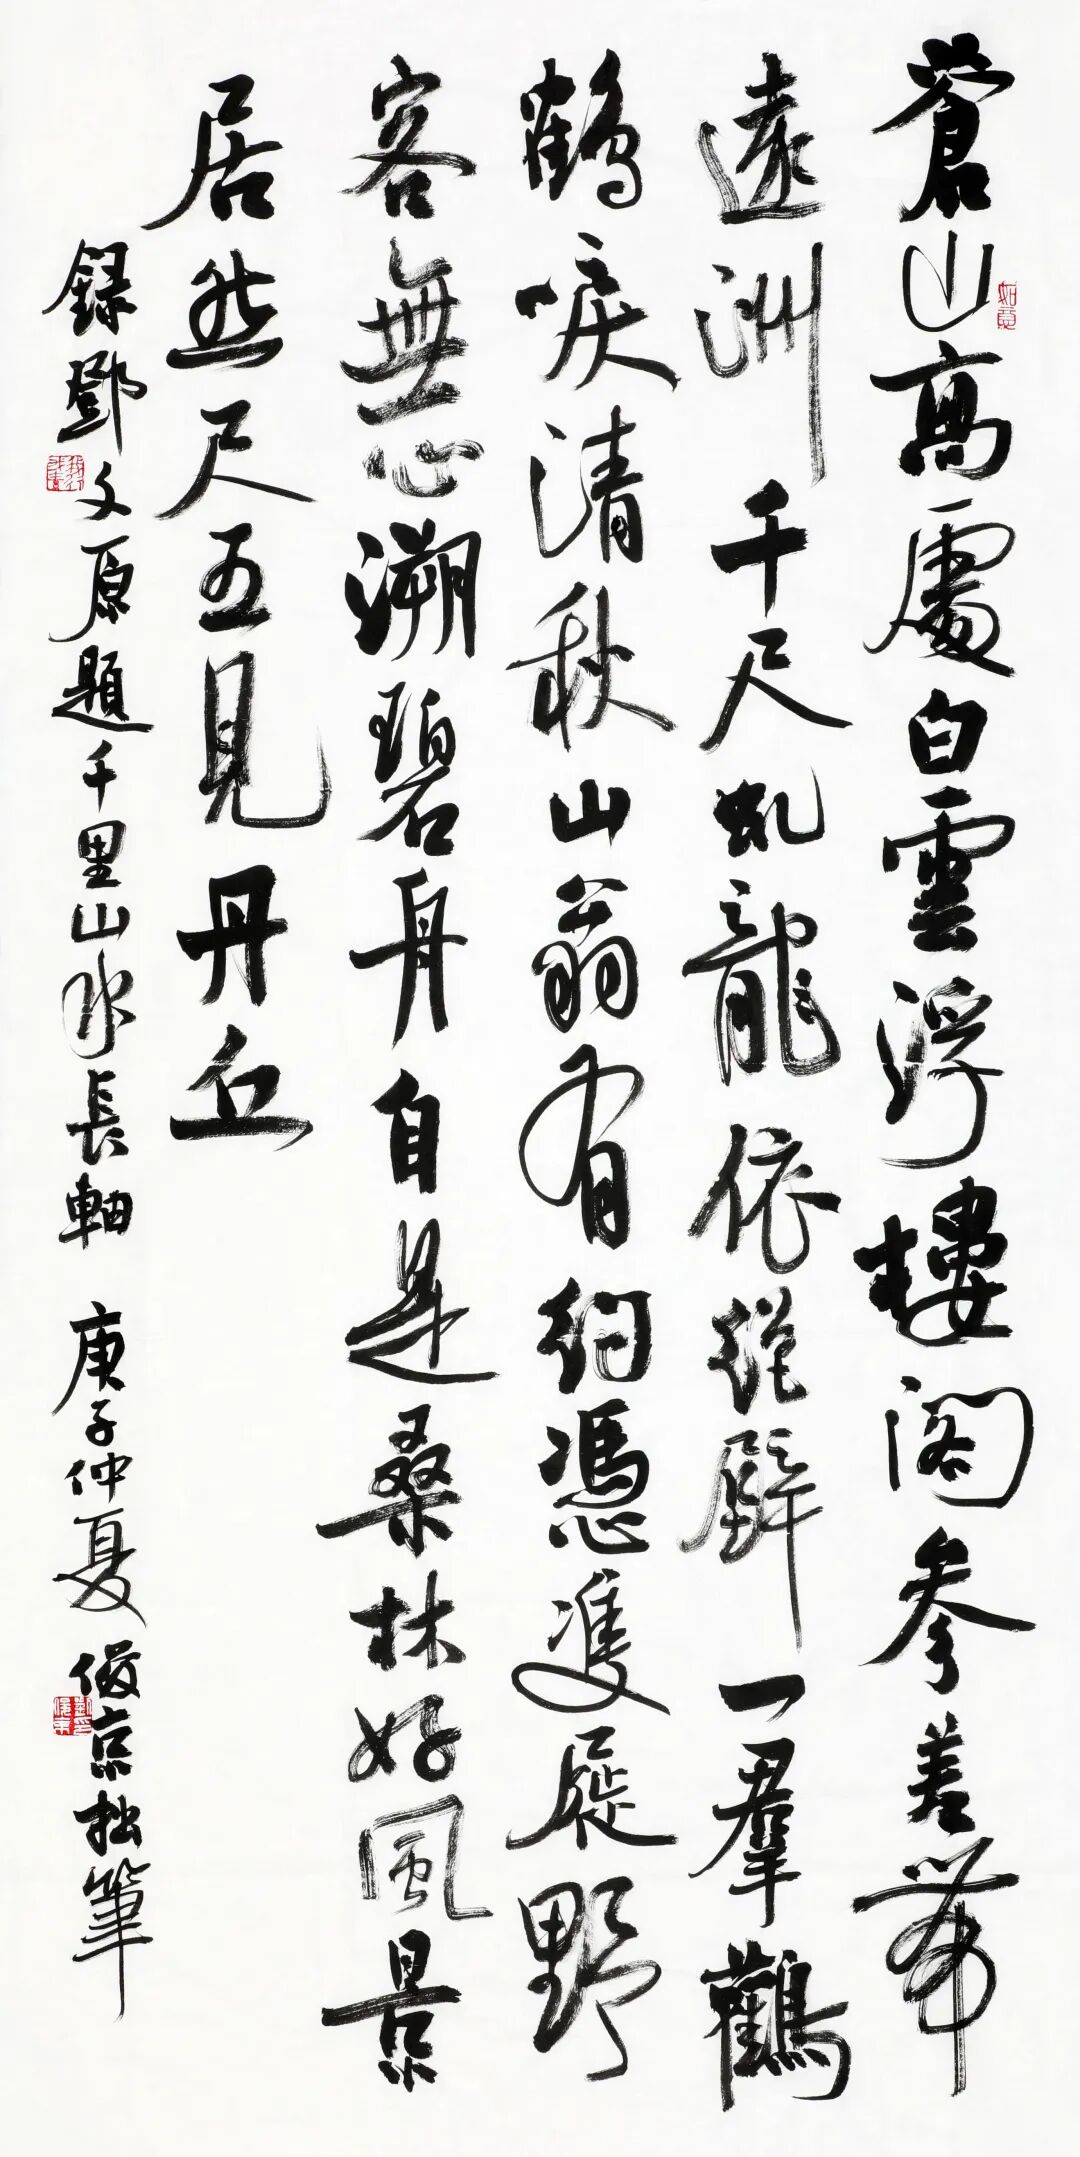 蒼山高處白雲浮樓閣參差帶
遠洲千尺虬龍依絕壁一羣鸛
鶴唳清秋山翁有約憑雙屐野
客無心溯碧舟自是桑林好風景
居然尺五見丹丘
錄鄧文原題千里山水長軸 庚子仲夏 俊京拙筆
如意